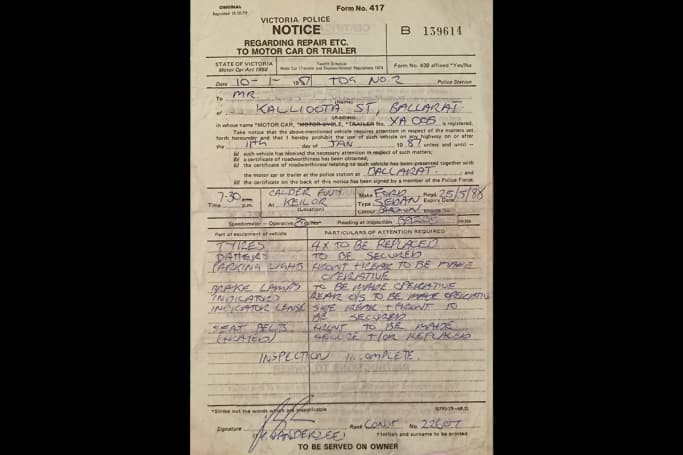 ORIGINAL
Form No. 417
VICTORIA POLICE
NOTICE
B 139614
REGARDING REPAIR ETC.
TO MOTOR CAR OR TRAILER
STATE OF VICTORIA
Motor Car Act 1958
Twelfth Schedule
Form No. 439 affixed *Yes/No
Date 10-1- 1987 TOG NO.2 Police Station
To MR
(Name)
of KALLIOOTA ST, BALLARAT
in whose name *MOTOR CAR, *MOTOR CYCLE, *TRAILER No. XA 005 is registered.
Take notice that the above-mentioned vehicle requires attention in respect of the matters set
forth hereunder and that I hereby prohibit the use of such vehicle on any highway on or after
the 11th day of JAN 1987 unless and until—
(a) such vehicle has received the necessary attention in respect of such matters;
(b) a certificate of roadworthiness has been obtained;
(c) the certificate of roadworthiness relating to such vehicle has been presented together with
the motor car or trailer at the police station at BALLARAT and
(d) the certificate on the back of this notice has been signed by a member of the Police Force.
Time 7-30 a.m. p.m.
At CALDER FWY KEILOR
(Location)
Make FORD Regd. 25/5/86
Type SEDAN Expiry Date
Colour BROWN Engine No.
Speedometer – Operative Reading at inspection miles
Part of equipment of vehicle PARTICULARS OF ATTENTION REQUIRED
TYRES 4X TO BE REPLACED
BATTERY TO BE SECURED
PARKING LIGHTS FRONT + REAR TO BE MADE
OPERATIVE
BRAKE LAMPS TO BE MADE OPERATIVE
INDICATORS REAR O/S TO BE MADE OPERATIVE
INDICATOR LENSE SIDE REAR + FRONT TO
BE SECURED
SEAT BELTS FRONT TO BE MADE
SECURE +/OR REPLACED
INSPECTION INCOMPLETE.
*Strike out the words which are inapplicable
Signature Rank CONST No.
VANDERZEE
† Initials and surname to be printed
TO BE SERVED ON OWNER